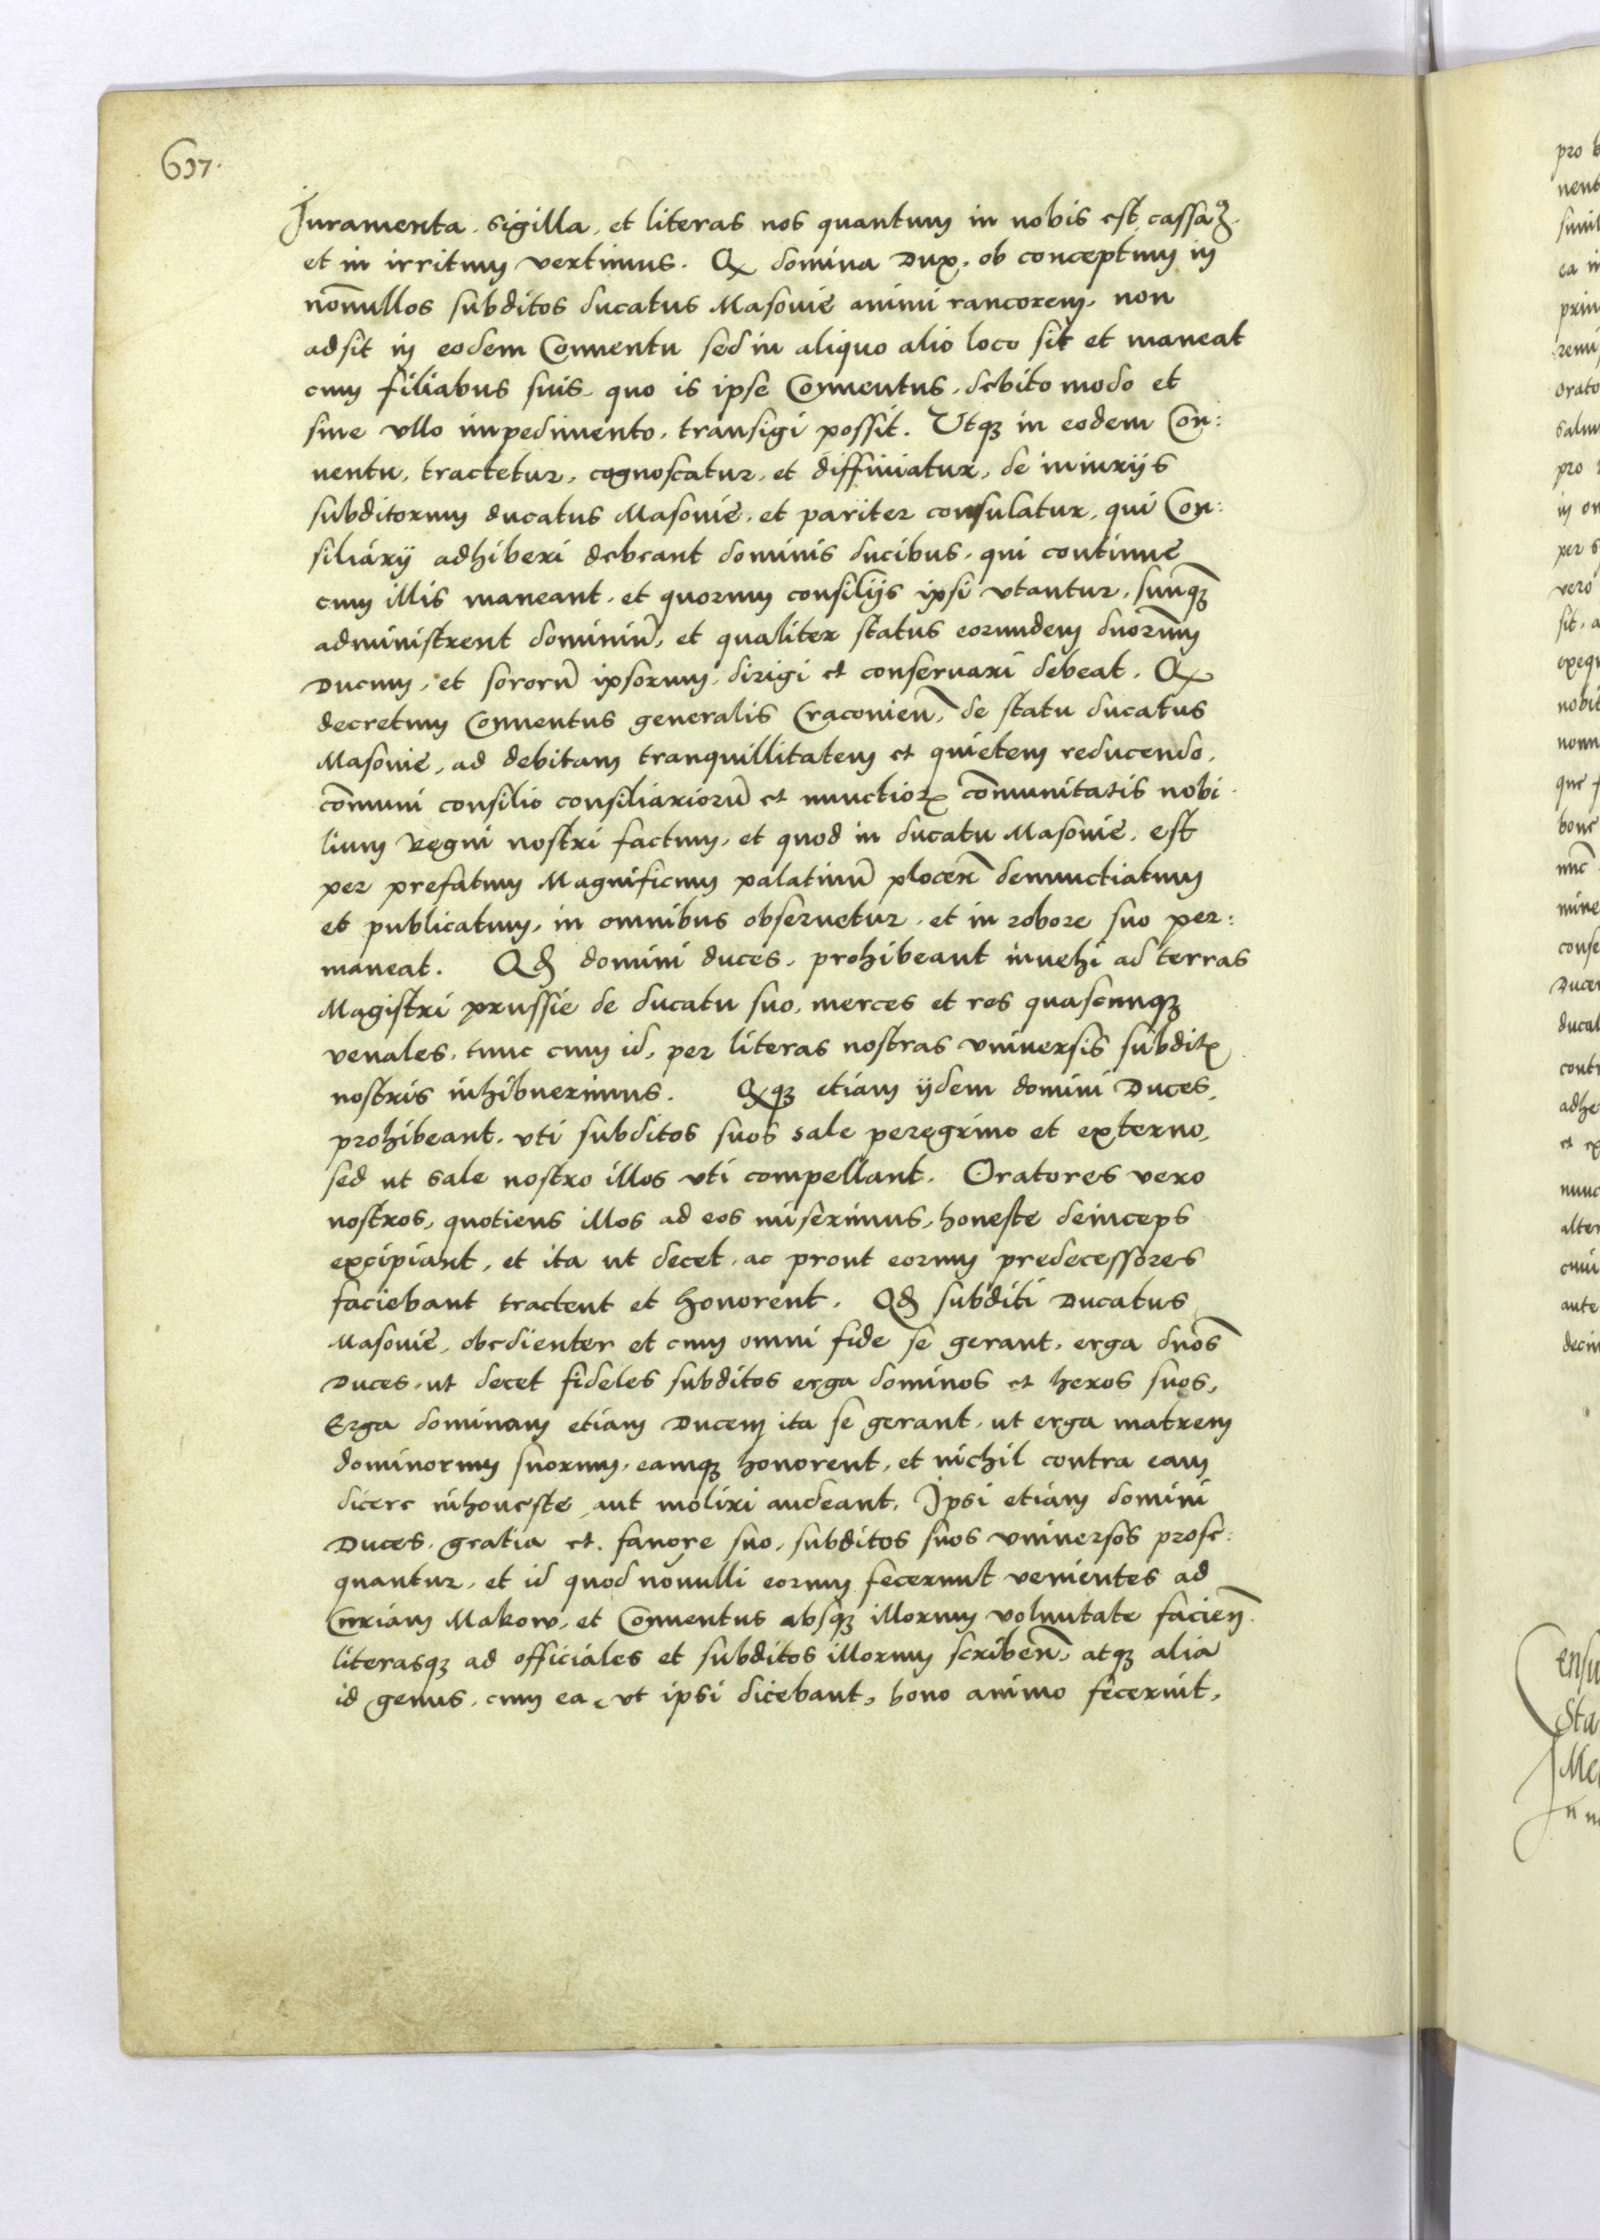 637.
Iuramenta, sigilla, et literas nos quantum in nobis est, cassamus.
et in irritum vertimus. Qꝙ domina Dux, ob conceptum in
nōnullos subditos ducatus Masovie animi rancorem, non
adsit in eodem Conventu sed in aliquo alio loco sit et maneat
cum filiabus suis, quo is ipse Conventus, debito modo et
sine ullo impedimento, transigi possit. Utqꝫ in eodem Con:
ventu, tractetur, cognoscatur, et diffiniatur, de iniuriis
subditorum ducatus Masovie, et pariter consulatur, qui Con:
siliarij adhiberi debeant dominis ducibus, qui continue
cum illis maneant, et quorum consilijs ipsi utantur, suūqꝫ
administrent dominiū, et qualiter status eorundem duorum
Ducum, et sororū ipsorum, dirigi et conservari debeat. Qꝙ
decretum Conventus generalis Cracovien̄, de statu ducatus
Masovie, ad debitam tranquillitatem et quietem reducendo,
cōmuni consilio consiliariorū et nunctioꝝ cōmunitatis nobi
lium Regni nostri factum, et quod in ducatu Masovie, est
per prefatum Magnificum palatinū plocen̄ denunctiatum
et publicatum, in omnibus observetur, et in robore suo per:
maneat. Qꝙ domini duces, prohibeant invehi ad terras
Magistri prussie de ducatu suo, merces et res quascunqꝫ
venales, tunc cum id, per literas nostras universis subditꝭ
nostris inhibuerimus. Qꝙqꝫ etiam ijdem domini Duces,
prohibeant, uti subditos suos sale peregrino et externo,
sed ut sale nostro illos uti compellant. Oratores vero
nostros, quotiens illos ad eos miserimus, honeste deinceps
excipiant, et ita ut decet, ac prout eorum predecessores
faciebant tractent et honorent. Qꝙ subditi Ducatus
Masovie, obedienter et cum omni fide se gerant, erga dnōs
Duces, ut decet fideles subditos erga dominos et heros suos,
Erga dominam etiam Ducem ita se gerant, ut erga matrem
dominorum suorum, eamqꝫ honorent, et nichil contra eam
dicere inhoneste, aut moliri audeant, Ipsi etiam domini
Duces, gratia et favore suo, subditos suos universos prose:
quantur, et id quod nonulli eorum fecerunt venientes ad
Curiam Makow, et Conventus absqꝫ illorum voluntate facien̄.
literasqꝫ ad officiales et subditos illorum scriben̄, atqꝫ alia
id genus, cum ea, ut ipsi dicebant, bono animo fecerint,